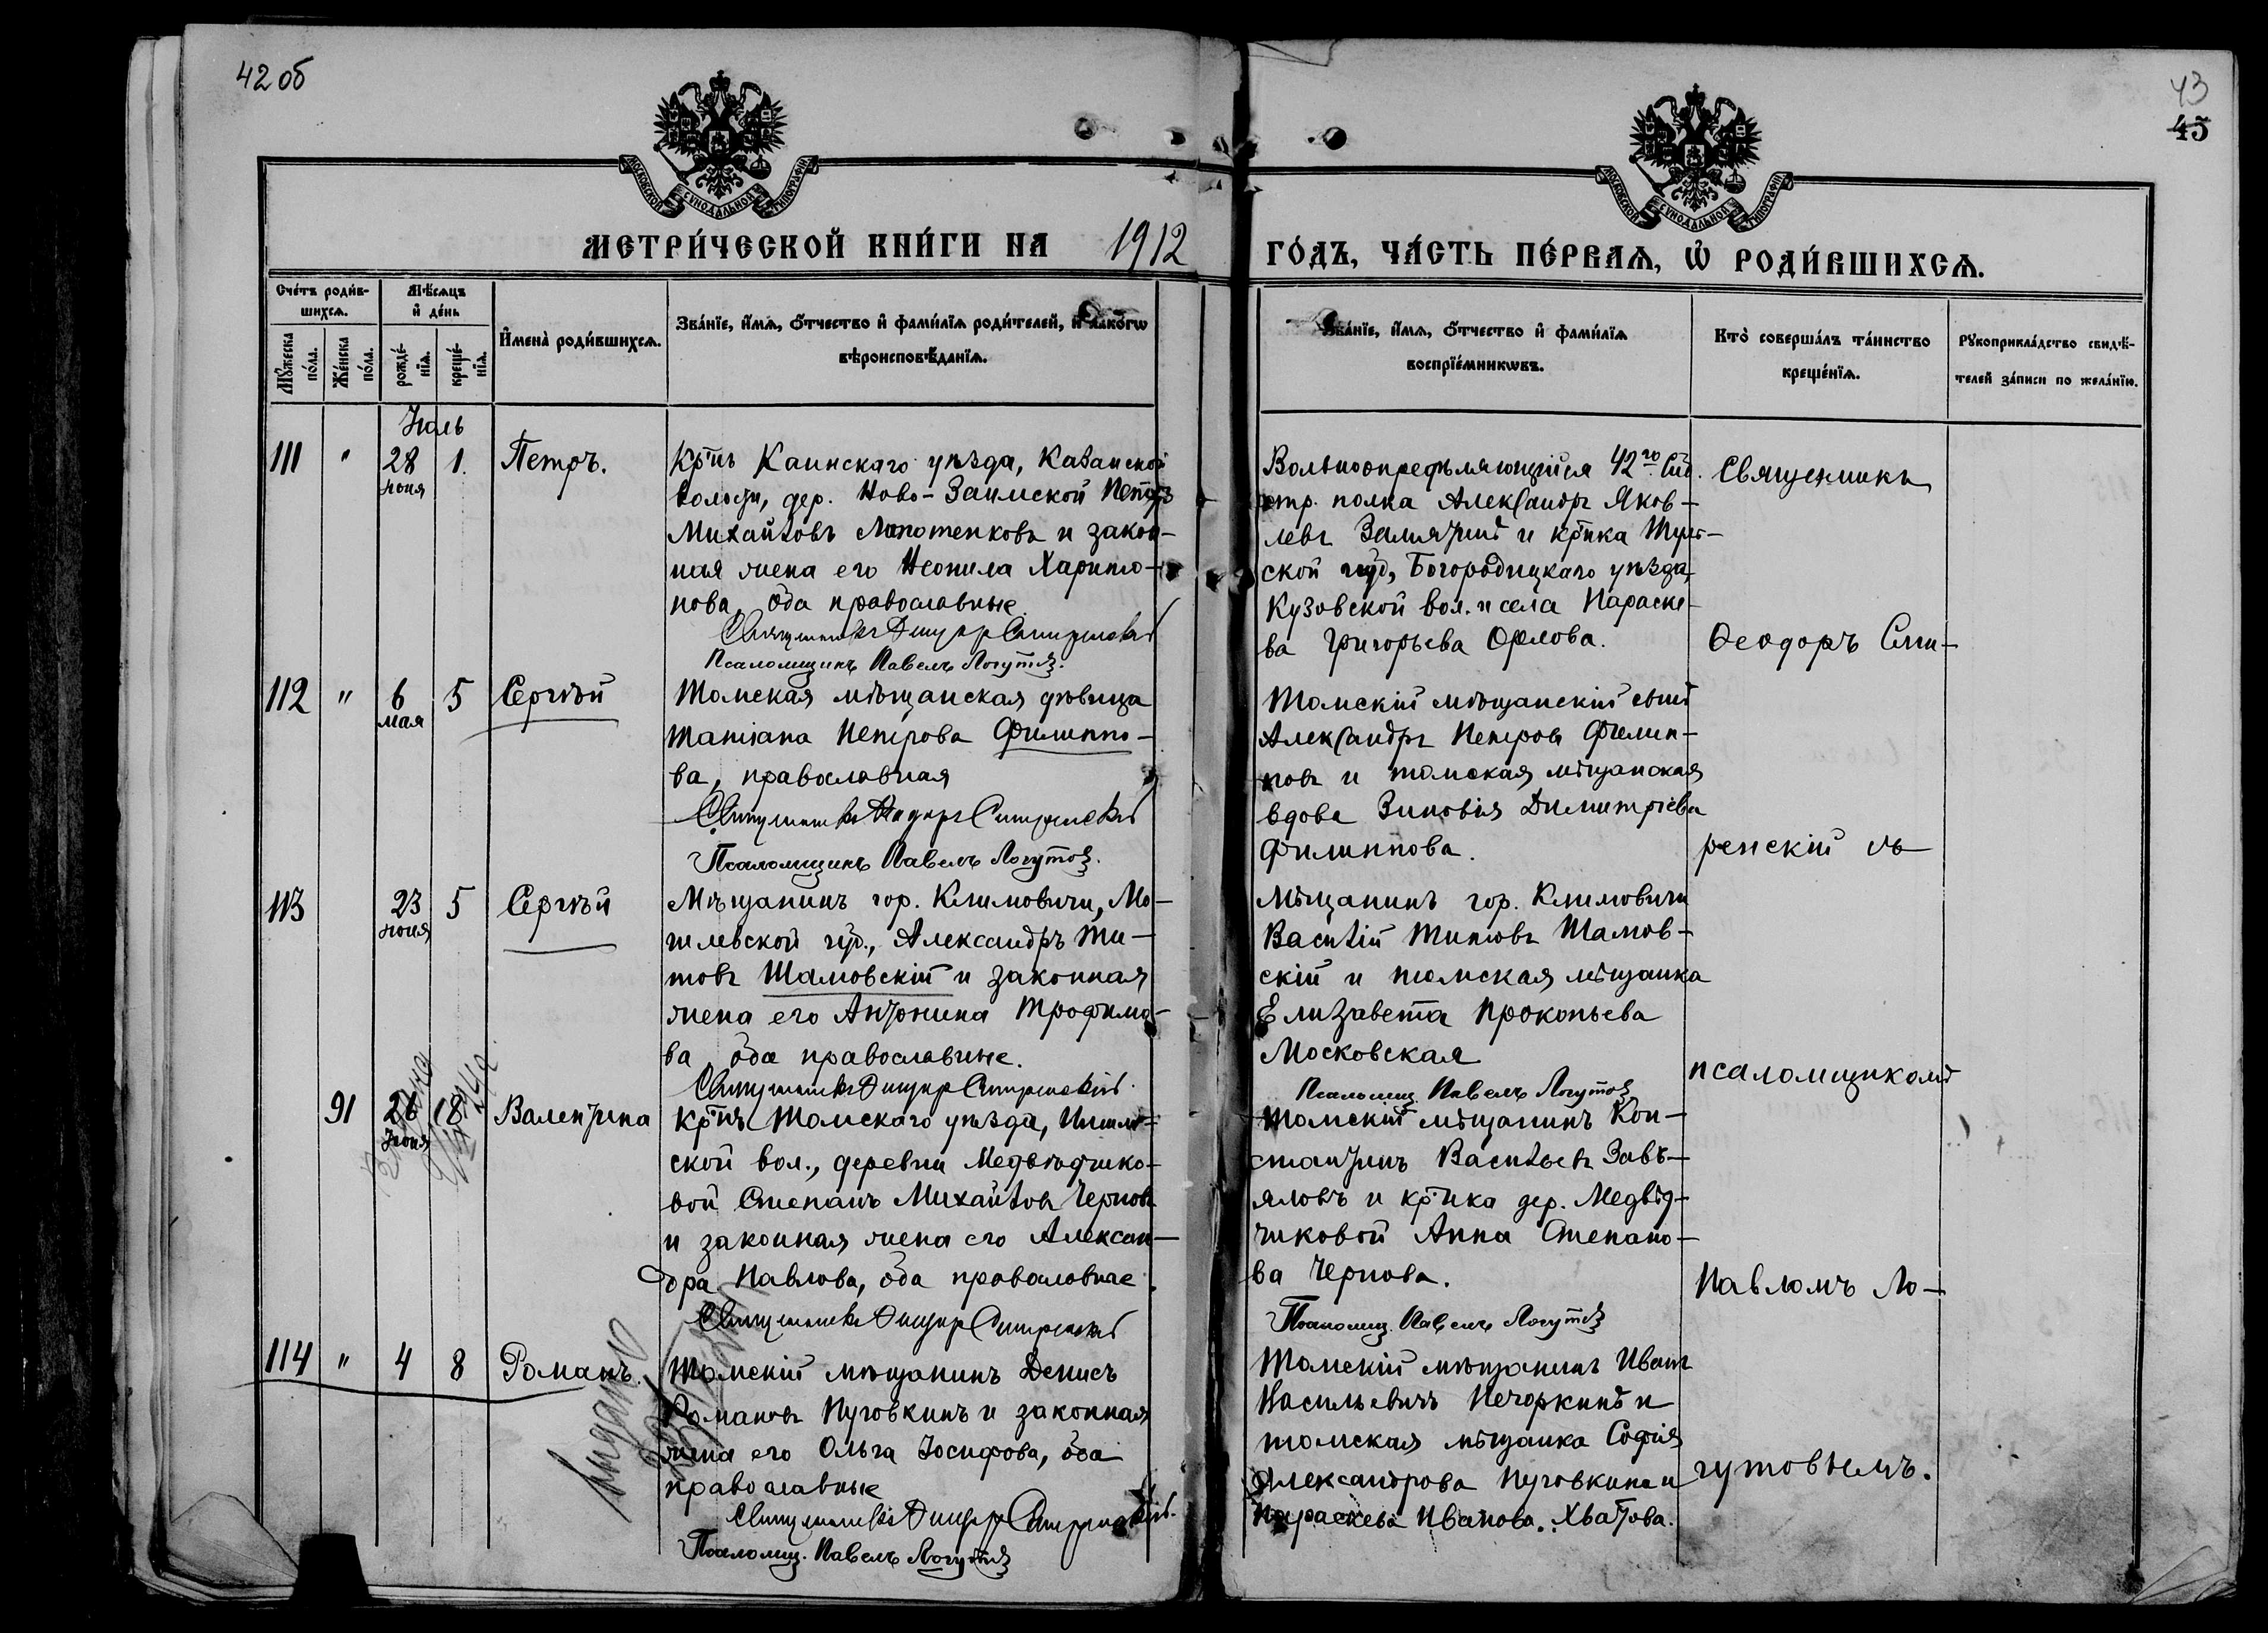 42 об
43
45
МОСКОВСКОЙ СѴНОДАЛЬНОЙ ТИПОГРАФІИ
МОСКОВСКОЙ СѴНОДАЛЬНОЙ ТИПОГРАФІИ
МЕТРИ́ЧЕСКОЙ КНИ́ГИ НА 1912
ГО́ДЪ, ЧА́СТЬ ПЕ́РВАѦ, Ѡ҆ РОДИ́ВШИХСѦ.
Сче́тъ роди́в-
шихсѧ.
Мꙋ́жеска по́ла.
Же́нска по́ла.
Мѣ́сѧцъ
и҆ де́нь
рожде́-
нїѧ.
креще́-
нїѧ.
И҆мена̀ роди́вшихсѧ.
Зва́нїе, и҆́мѧ, ѻ҆́тчество и҆ фами́лїѧ роди́телей, и҆ како́гѡ
вѣроисповѣ́данїѧ.
Зва́нїе, и҆́мѧ, ѻ҆́тчество и҆ фами́лїѧ
воспрїе́мникѡвъ.
Кто̀ соверша́лъ та́инство
креще́нїѧ.
Рꙋкоприкла́дство свидѣ́-
телей за́писи по жела́нїю.
Іюль
111 " 28 іюня 1. Петръ.
Кр-нъ Каинскаго уѣзда, Казанской
волости, дер. Ново-Заимской Петръ
Михайловъ Лопотенковъ и закон-
ная жена его Неонила Харито-
нова, оба православные.
Священникъ Ѳеодоръ Смиренскій
Псаломщикъ Павелъ Логутовъ.
Вольноопредѣляющійся 42го Сиб.
стр. полка Александръ Яков-
левъ Замятинъ и кр-нка Туль-
ской губ., Богородицкаго уѣзда,
Кузовской вол. и села Параске-
ва Григорьева Орлова.
Священникъ
Ѳеодоръ Сми-
112 " 6 мая 5 Сергѣй
Томская мѣщанская дѣвица
Татіана Петрова Филиппо-
ва, православная
Священникъ Ѳеодоръ Смиренскій
Псаломщикъ Павелъ Логутовъ.
Томскій мѣщанскій сынъ
Александръ Петровъ Филип-
повъ и томская мѣщанская
вдова Зиновія Димитріева
Филиппова.
ренскій съ
113 23 іюня 5 Сергѣй
Мѣщанинъ гор. Климовичи, Мо-
гилевской губ., Александръ Ти-
товъ Шамовскій и законная
жена его Антонина Трофимо-
ва, оба православные.
Священникъ Ѳеодоръ Смиренскій.
Мѣщанинъ гор. Климовичи
Василій Титовъ Шамов-
скій и томская мѣщанка
Елизавета Прокопьева
Московская
Псаломщ. Павелъ Логутовъ
псаломщикомъ
91 26 Іюня 8 Валентина
Кр-нъ Томскаго уѣзда, Ишим-
ской вол., деревни Медвѣдчико-
вой Степанъ Михайловъ Черновъ
и законная жена его Алексан-
дра Павлова, оба православные.
Священникъ Ѳеодоръ Смиренскій
Томскій мѣщанинъ Кон-
стантинъ Васильевъ Завъ-
яловъ и кр-нка дер. Медвѣд-
чиковой Анна Степано-
ва Чернова.
Псаломщ. Павелъ Логутовъ
Павломъ Ло-
114 " 4 8 Романъ.
Томскій мѣщанинъ Денисъ
Романовъ Пуговкинъ и законная
жена его Ольга Іосифова, оба
православные
Священникъ Ѳеодоръ Смиренскій.
Псаломщ. Павелъ Логутовъ
Томскій мѣщанинъ Иванъ
Васильевичъ Печоркинъ и
томская мѣщанка Софія
Александрова Пуговкина и
Параскева Иванова Хватова.
гутовымъ.
выдано